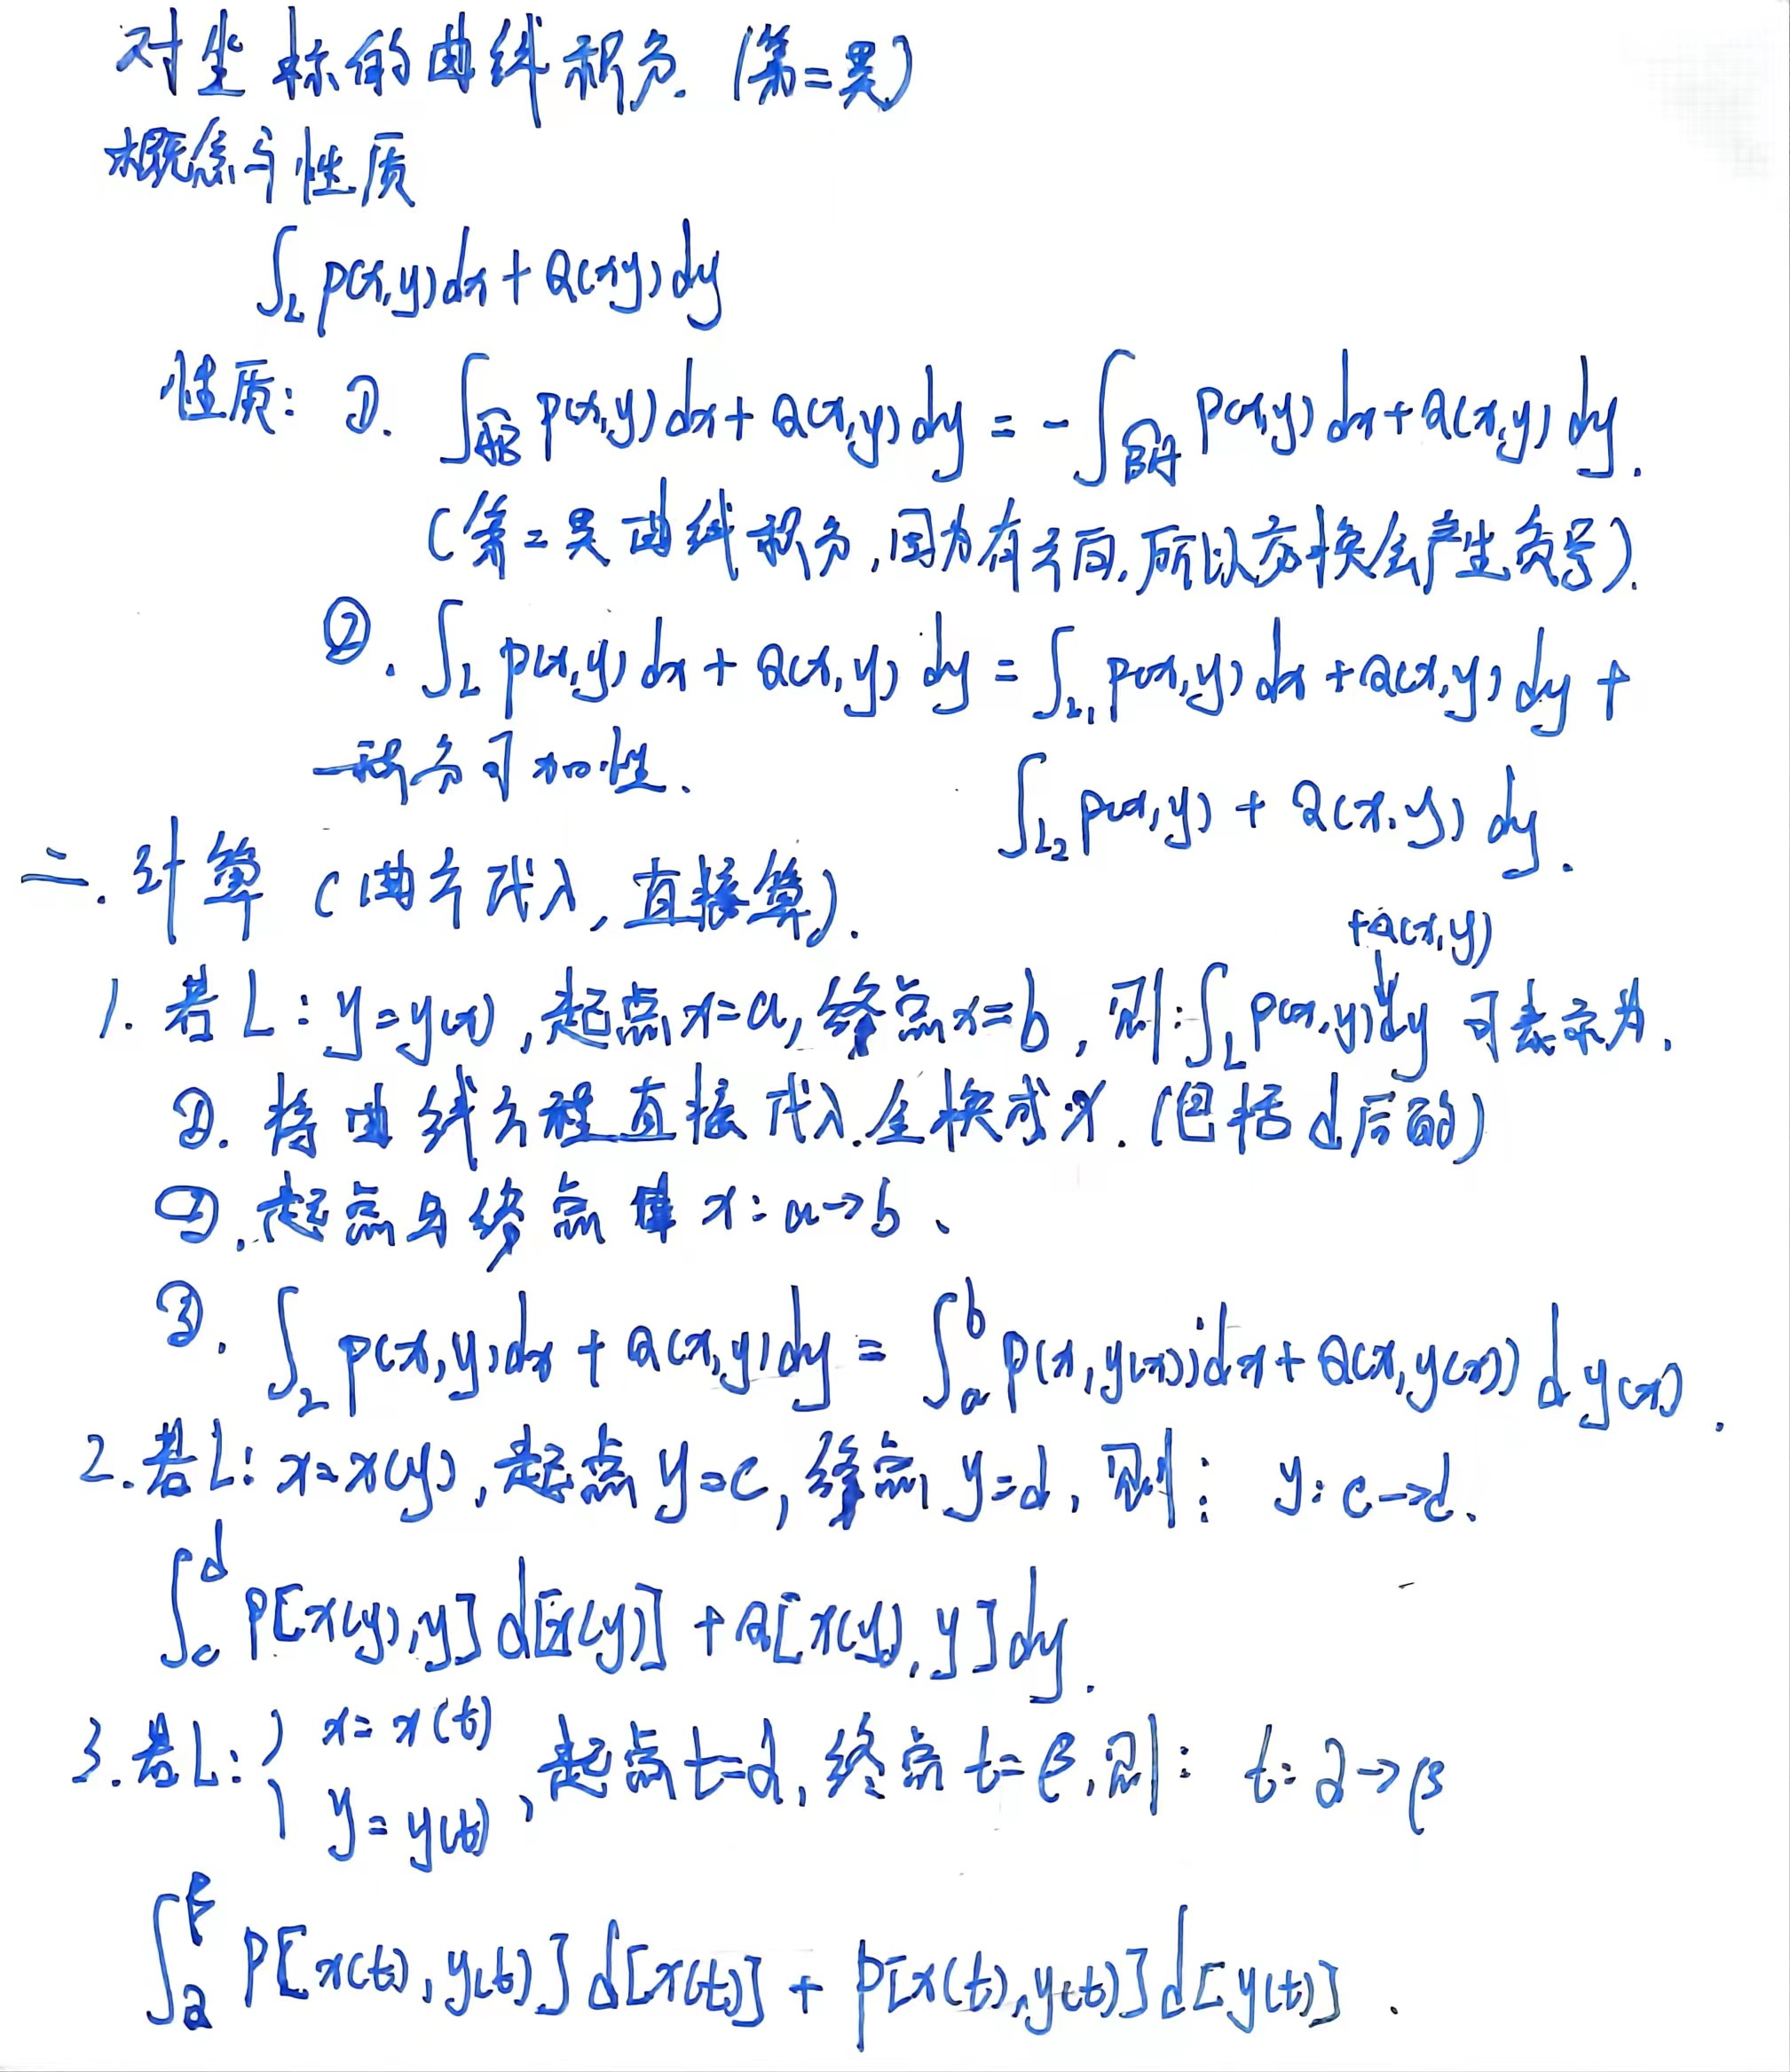 对坐标的曲线积分.(第二类)
概念与性质
∫_L P(x,y)dx+Q(x,y)dy
性质: ①. ∫_{AB} P(x,y)dx+Q(x,y)dy = -∫_{BA} P(x,y)dx+Q(x,y)dy.
(第二类曲线积分,因为有方向,所以交换会产生负号).
②. ∫_L P(x,y)dx+Q(x,y)dy = ∫_{L₁} P(x,y)dx+Q(x,y)dy +
一积分可加性.
∫_{L₂} P(x,y)+Q(x,y)dy.
二.计算(曲方代入,直接算).
+Q(x,y)
1. 若L: y=y(x),起点x=a,终点x=b,则:∫_L P(x,y)dy 可表示为.
①. 将曲线方程直接代入.全换成x.(包括d后面)
②.起点与终点 x: a→b、
③. ∫_L P(x,y)dx+Q(x,y)dy = ∫_a^b P(x,y(x))dx+Q(x,y(x))dy(x).
2.若L: x=x(y),起点y=c,终点y=d,则: y: c→d.
∫_c^d P[x(y),y]d[x(y)]+Q[x(y),y]dy.
3.若L:{ x=x(t)
y=y(t) ,起点t=α,终点t=β,则: t: α→β
∫_α^β P[x(t),y(t)]d[x(t)]+P[x(t),y(t)]d[y(t)].